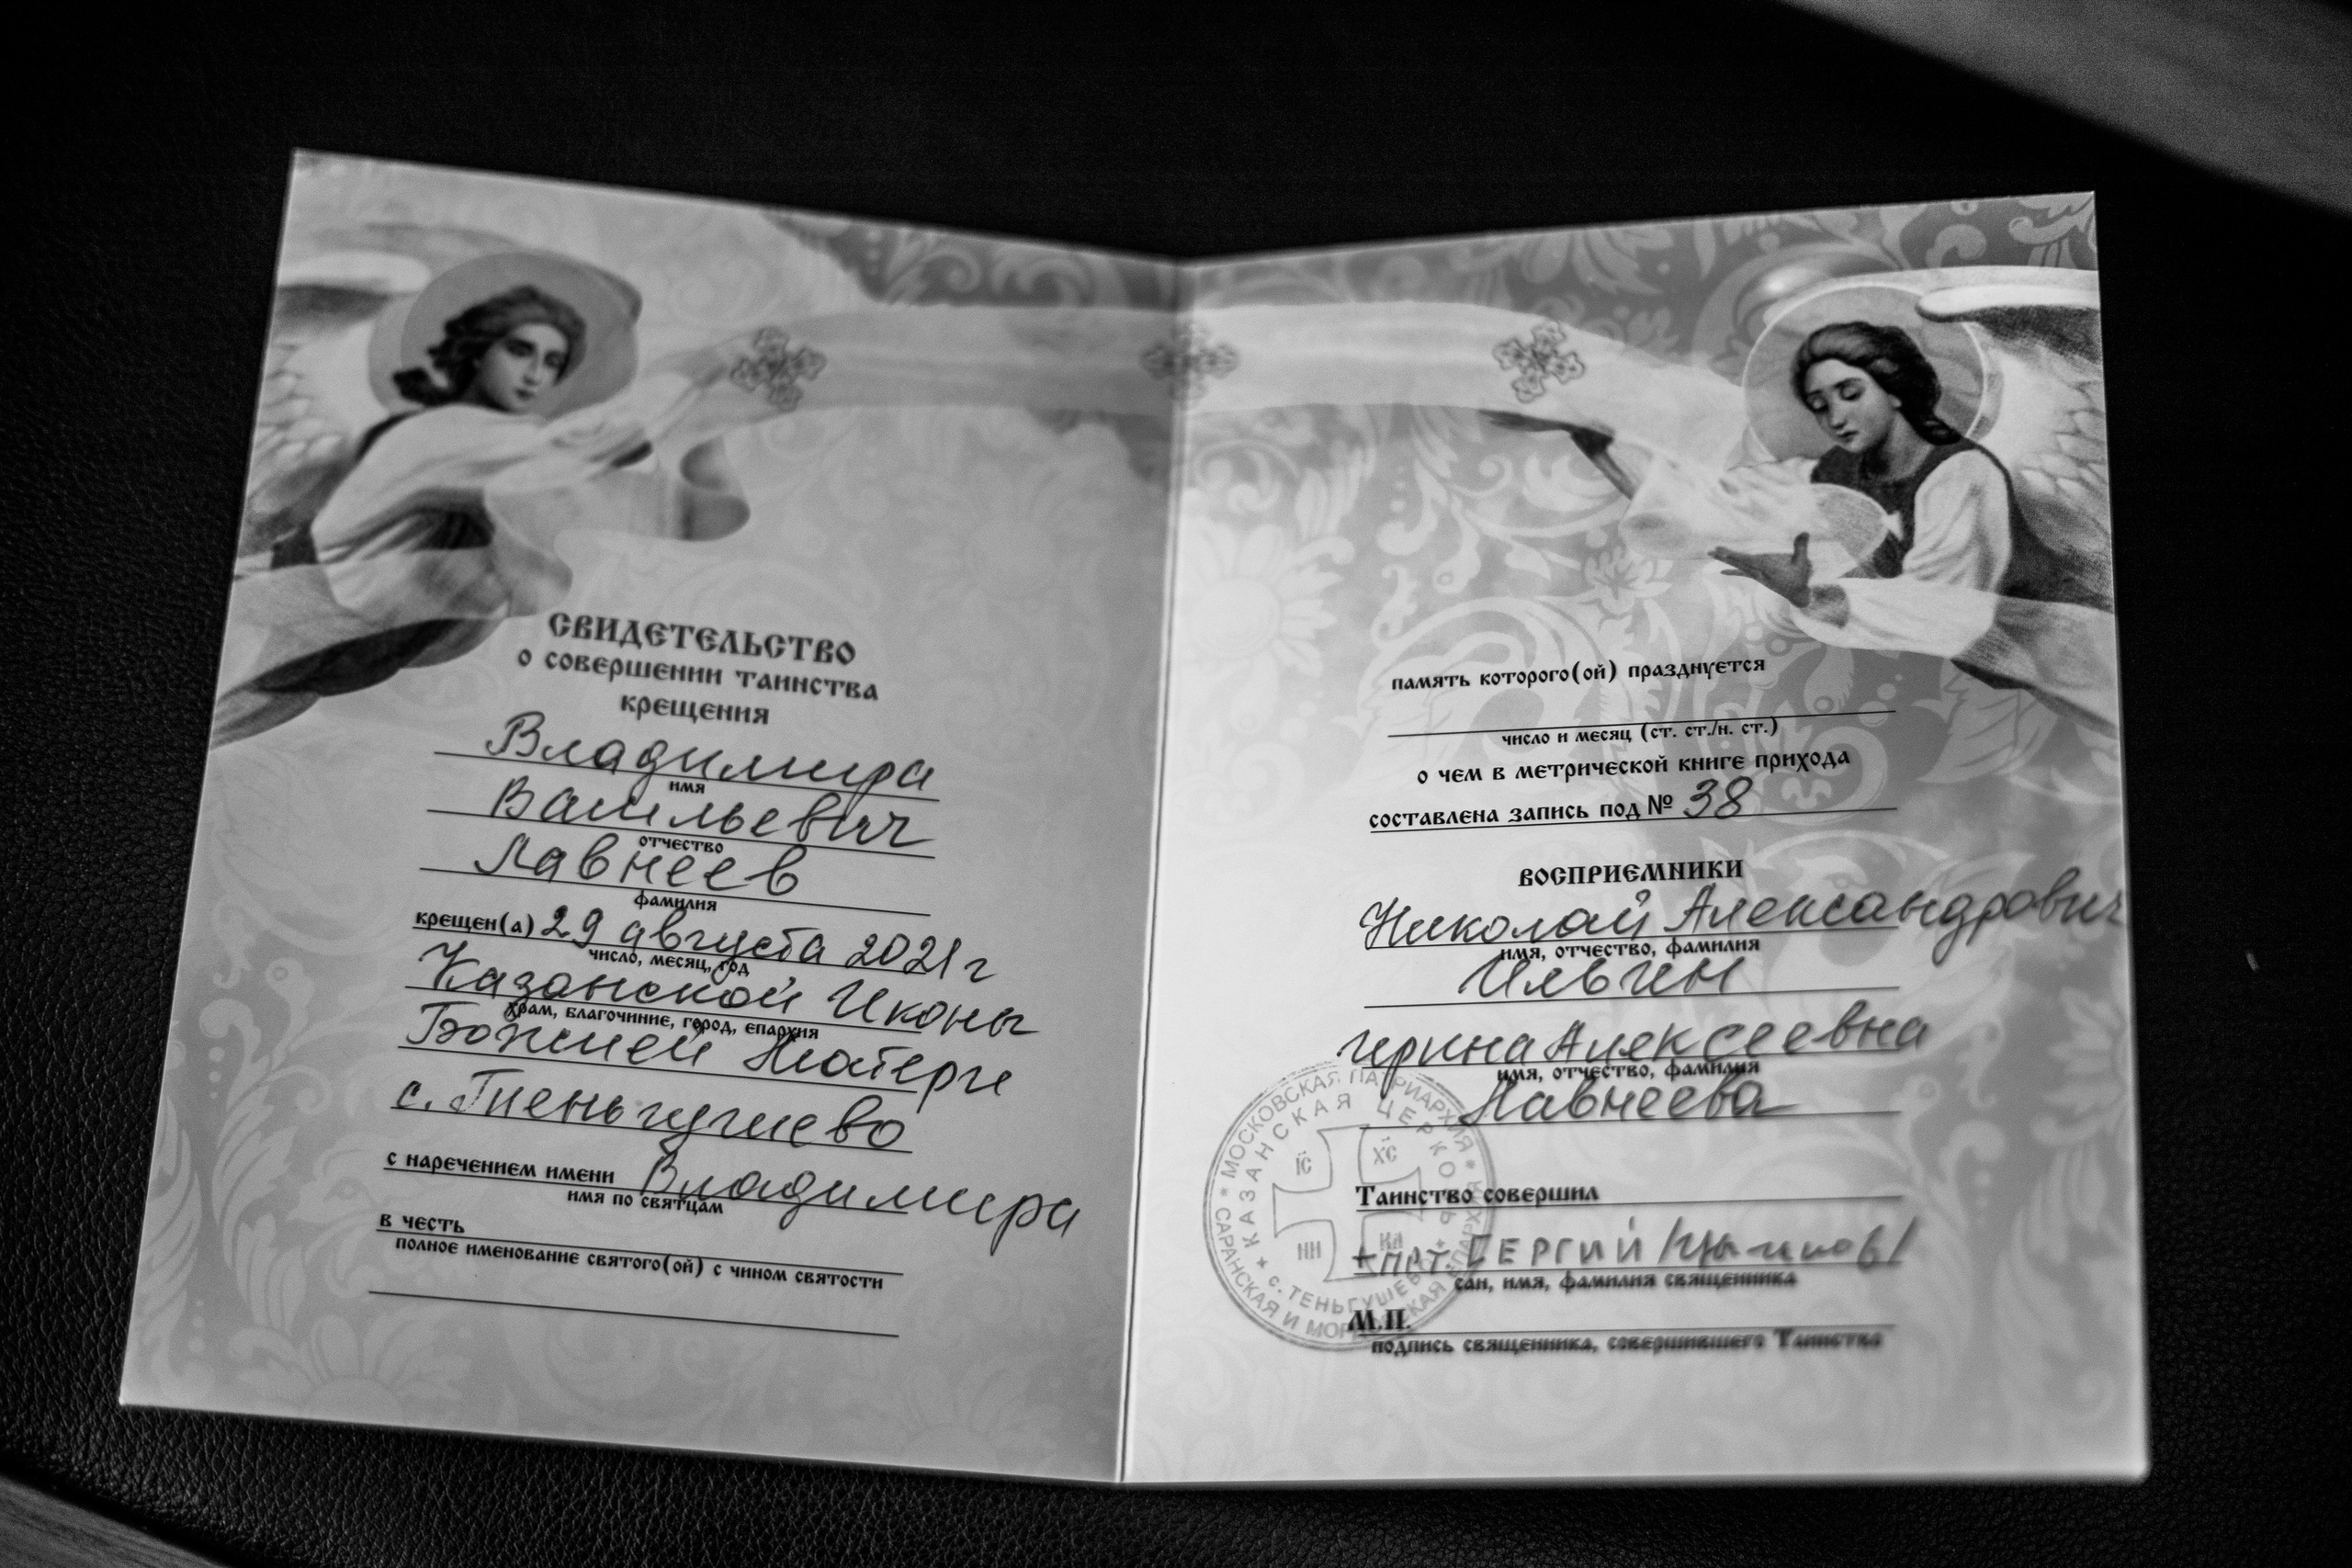 СВИДЕТЕЛЬСТВО
о совершении таинства
крещения
Владимира
имя
Васильевич
отчество
Лавнеев
фамилия
крещен(а) 29 августа 2021 г
число, месяц, год
Казанской Иконы
храм, благочиние, город, епархия
Божией Матери
с. Теньгушево
с наречением имени Владимира
имя по святцам
в честь
полное именование святого(ой) с чином святости
память которого(ой) празднуется
число и месяц (ст. ст./н. ст.)
о чем в метрической книге прихода
составлена запись под № 38
ВОСПРИЕМНИКИ
Николай Александрович
имя, отчество, фамилия
Ильин
Ирина Алексеевна
имя, отчество, фамилия
Лавнеева
* МОСКОВСКАЯ ПАТРИАРХИЯ * САРАНСКАЯ И МОРДОВСКАЯ ЕПАРХИЯ
КАЗАНСКАЯ ЦЕРКОВЬ + с. ТЕНЬГУШЕВО +
IС ХС
НИ КА
Таинство совершил
+ прт. СЕРГИЙ
сан, имя, фамилия священника
М.П.
подпись священника, совершившего Таинства